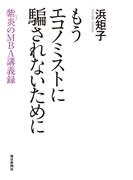 浜矩子
もう
エコノミストに
騙されないために
紫炎のMBA講義録
毎日新聞出版